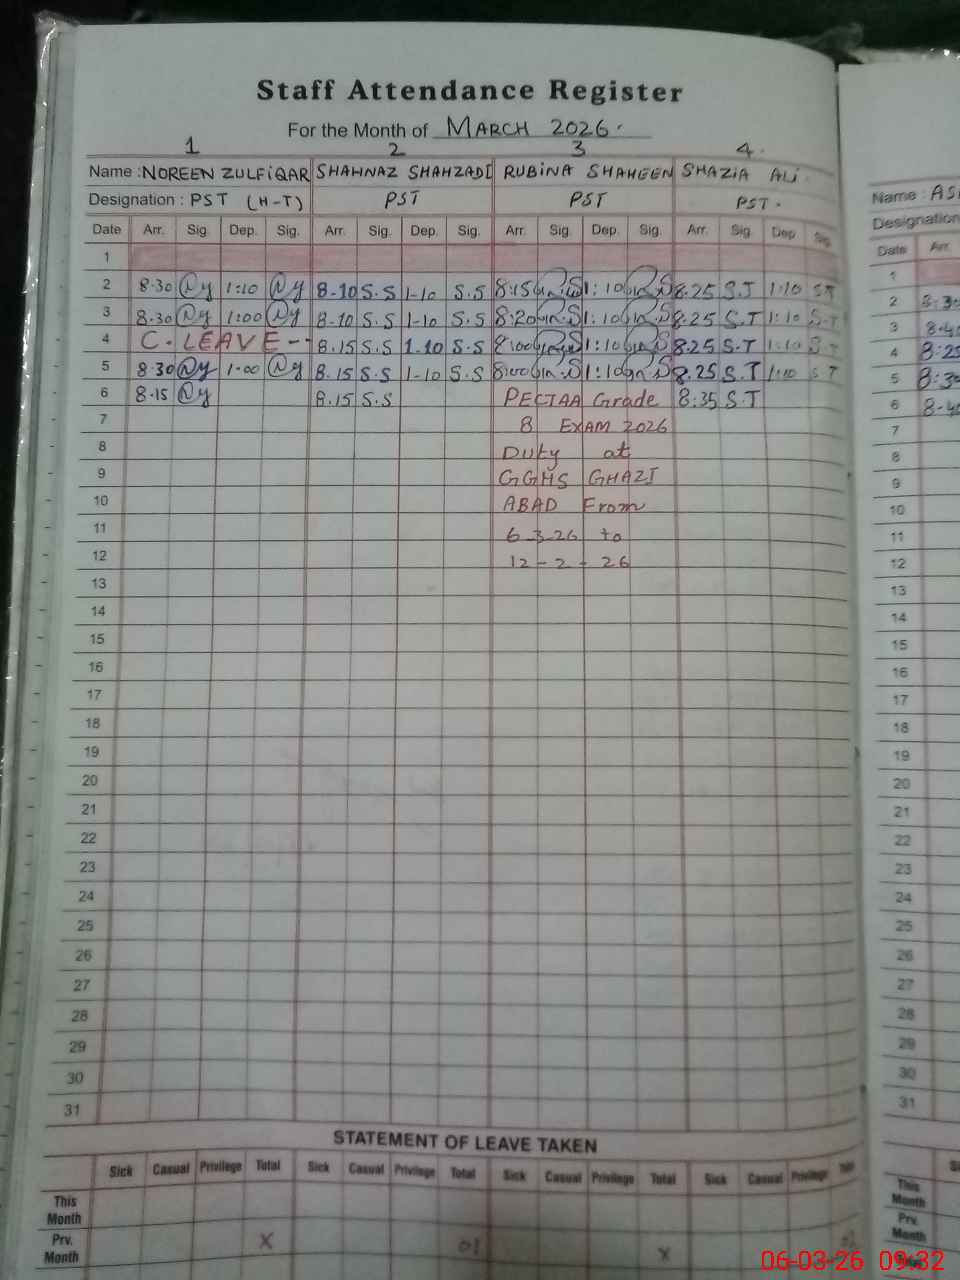 Staff Attendance Register
For the Month of MARCH 2026.
1 2 3 4.
Name : NOREEN ZULFIQAR SHAHNAZ SHAHZADI RUBINA SHAHEEN SHAZIA ALI Name :
Designation : PST (H-T) PST PST PST. Designation
Date Arr. Sig. Dep. Sig. Arr. Sig. Dep. Sig. Arr. Sig. Dep. Sig. Arr. Sig. Dep Sig Date Arr.
1 1
2 8.30 1:10 8-10 S.S 1-10 S.S 8:15 1:10 8.25 S.T 1:10 S.T 2
3 8.30 1:00 8-10 S.S 1-10 S.S 8:20 1:10 8.25 S.T 1:10 S.T 3
4 C. LEAVE - 8.15 S.S 1.10 S.S 8:00 1:10 8.25 S.T 1:10 S.T 4
5 8.30 1.00 8.15 S.S 1-10 S.S 8:00 1:10 8.25 S.T 1:10 S.T 5
6 8.15 8.15 S.S PECTAA Grade 8:35 S.T 6
7 8 EXAM 2026 7
8 Duty at 8
9 GGHS GHAZI 9
10 ABAD From 10
11 6-3-26 to 11
12 12-2-26 12
13 13
14 14
15 15
16 16
17 17
18 18
19 19
20 20
21 21
22 22
23 23
24 24
25 25
26 26
27 27
28 28
29 29
30 30
31 31
STATEMENT OF LEAVE TAKEN
Sick Casual Privilege Total Sick Casual Privilege Total Sick Casual Privilege Total Sick Casual Privilege Total
This Month This Month
Prv. Month X 01 X Prv.
06-03-26 09:32